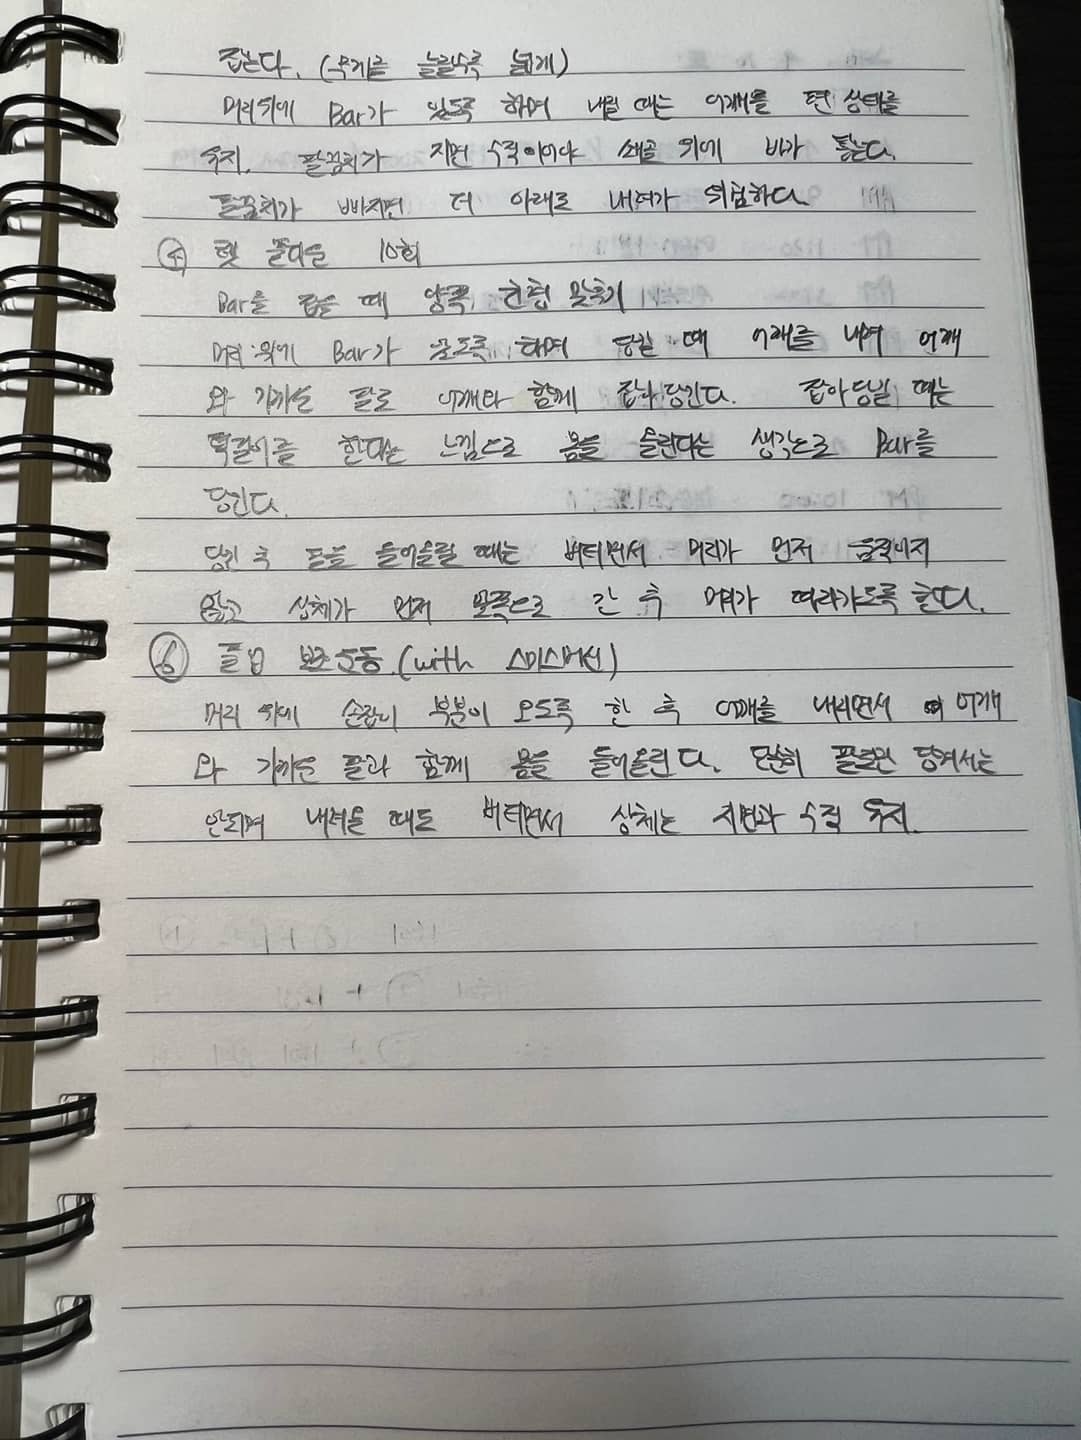 잡는다. (무게를 늘릴수록 넓게)
머리 위에 Bar가 있도록 하며 내릴 때는 어깨를 편 상태를
유지. 팔꿈치가 지면 수직이어야 쇄골 위에 바가 통는다.
팔꿈치가 빠지면 더 아래로 내려가 위험하다.
렛 풀다운 10회
Bar를 잡을 때 양쪽 균형 맞추기
머리 위에 Bar가 오도록 하며 당길 때 어깨를 내려 어깨
와 가까운 팔로 어깨와 함께 잡아 당긴다. 잡아 당길 때는
턱걸이를 한다는 느낌으로 몸을 올린다는 생각으로 Bar를
당긴다.
당긴 후 팔을 들어올릴 때는 버티면서 머리가 먼저 움직이지
않고 상체가 먼저 앞쪽으로 간 후 머리가 따라가도록 한다.
⑥ 풀업 보조운동 (with 스미스머신)
머리 위에 손잡이 부분이 오도록 한 후 어깨를 내리면서 어깨
와 가까운 팔과 함께 몸을 들어올린다. 단순히 팔로만 당겨서는
안되며 내려올 때도 버티면서 상체는 지면과 수직 유지.